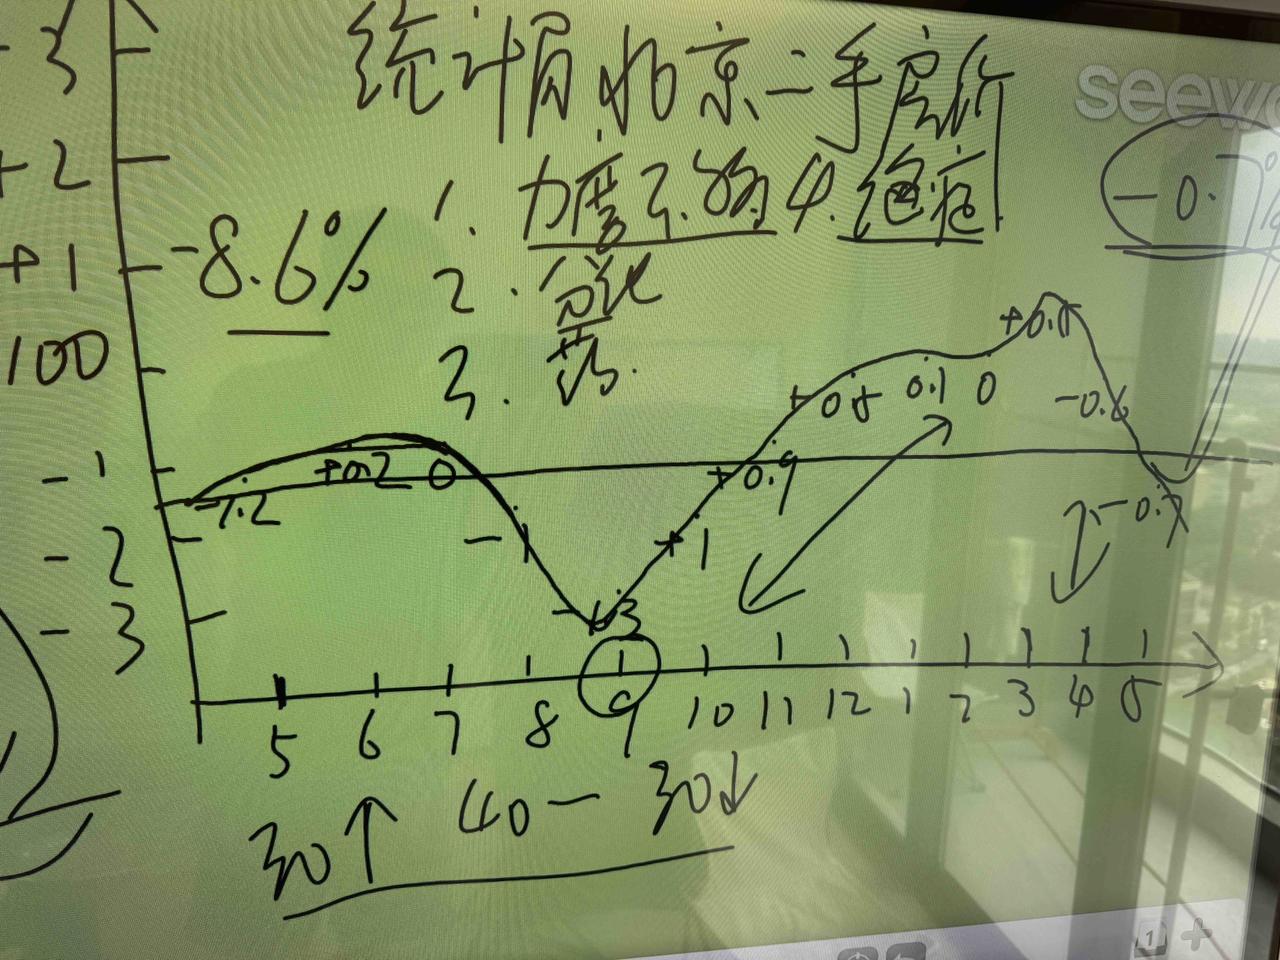 统计局北京二手房价
seewo
-3
+2
+1
100
-1
-2
-3
-8.6%
1. 力度不够 4.
2.
3.
-0.7%
-1.2
+0.2
0
-1
-3
+1
+0.9
+0.5
0.1
0
-0.6
-0.7
5 6 7 8 9 10 11 12 1 2 3 4 5
30↑ 40— 30↓
1 +